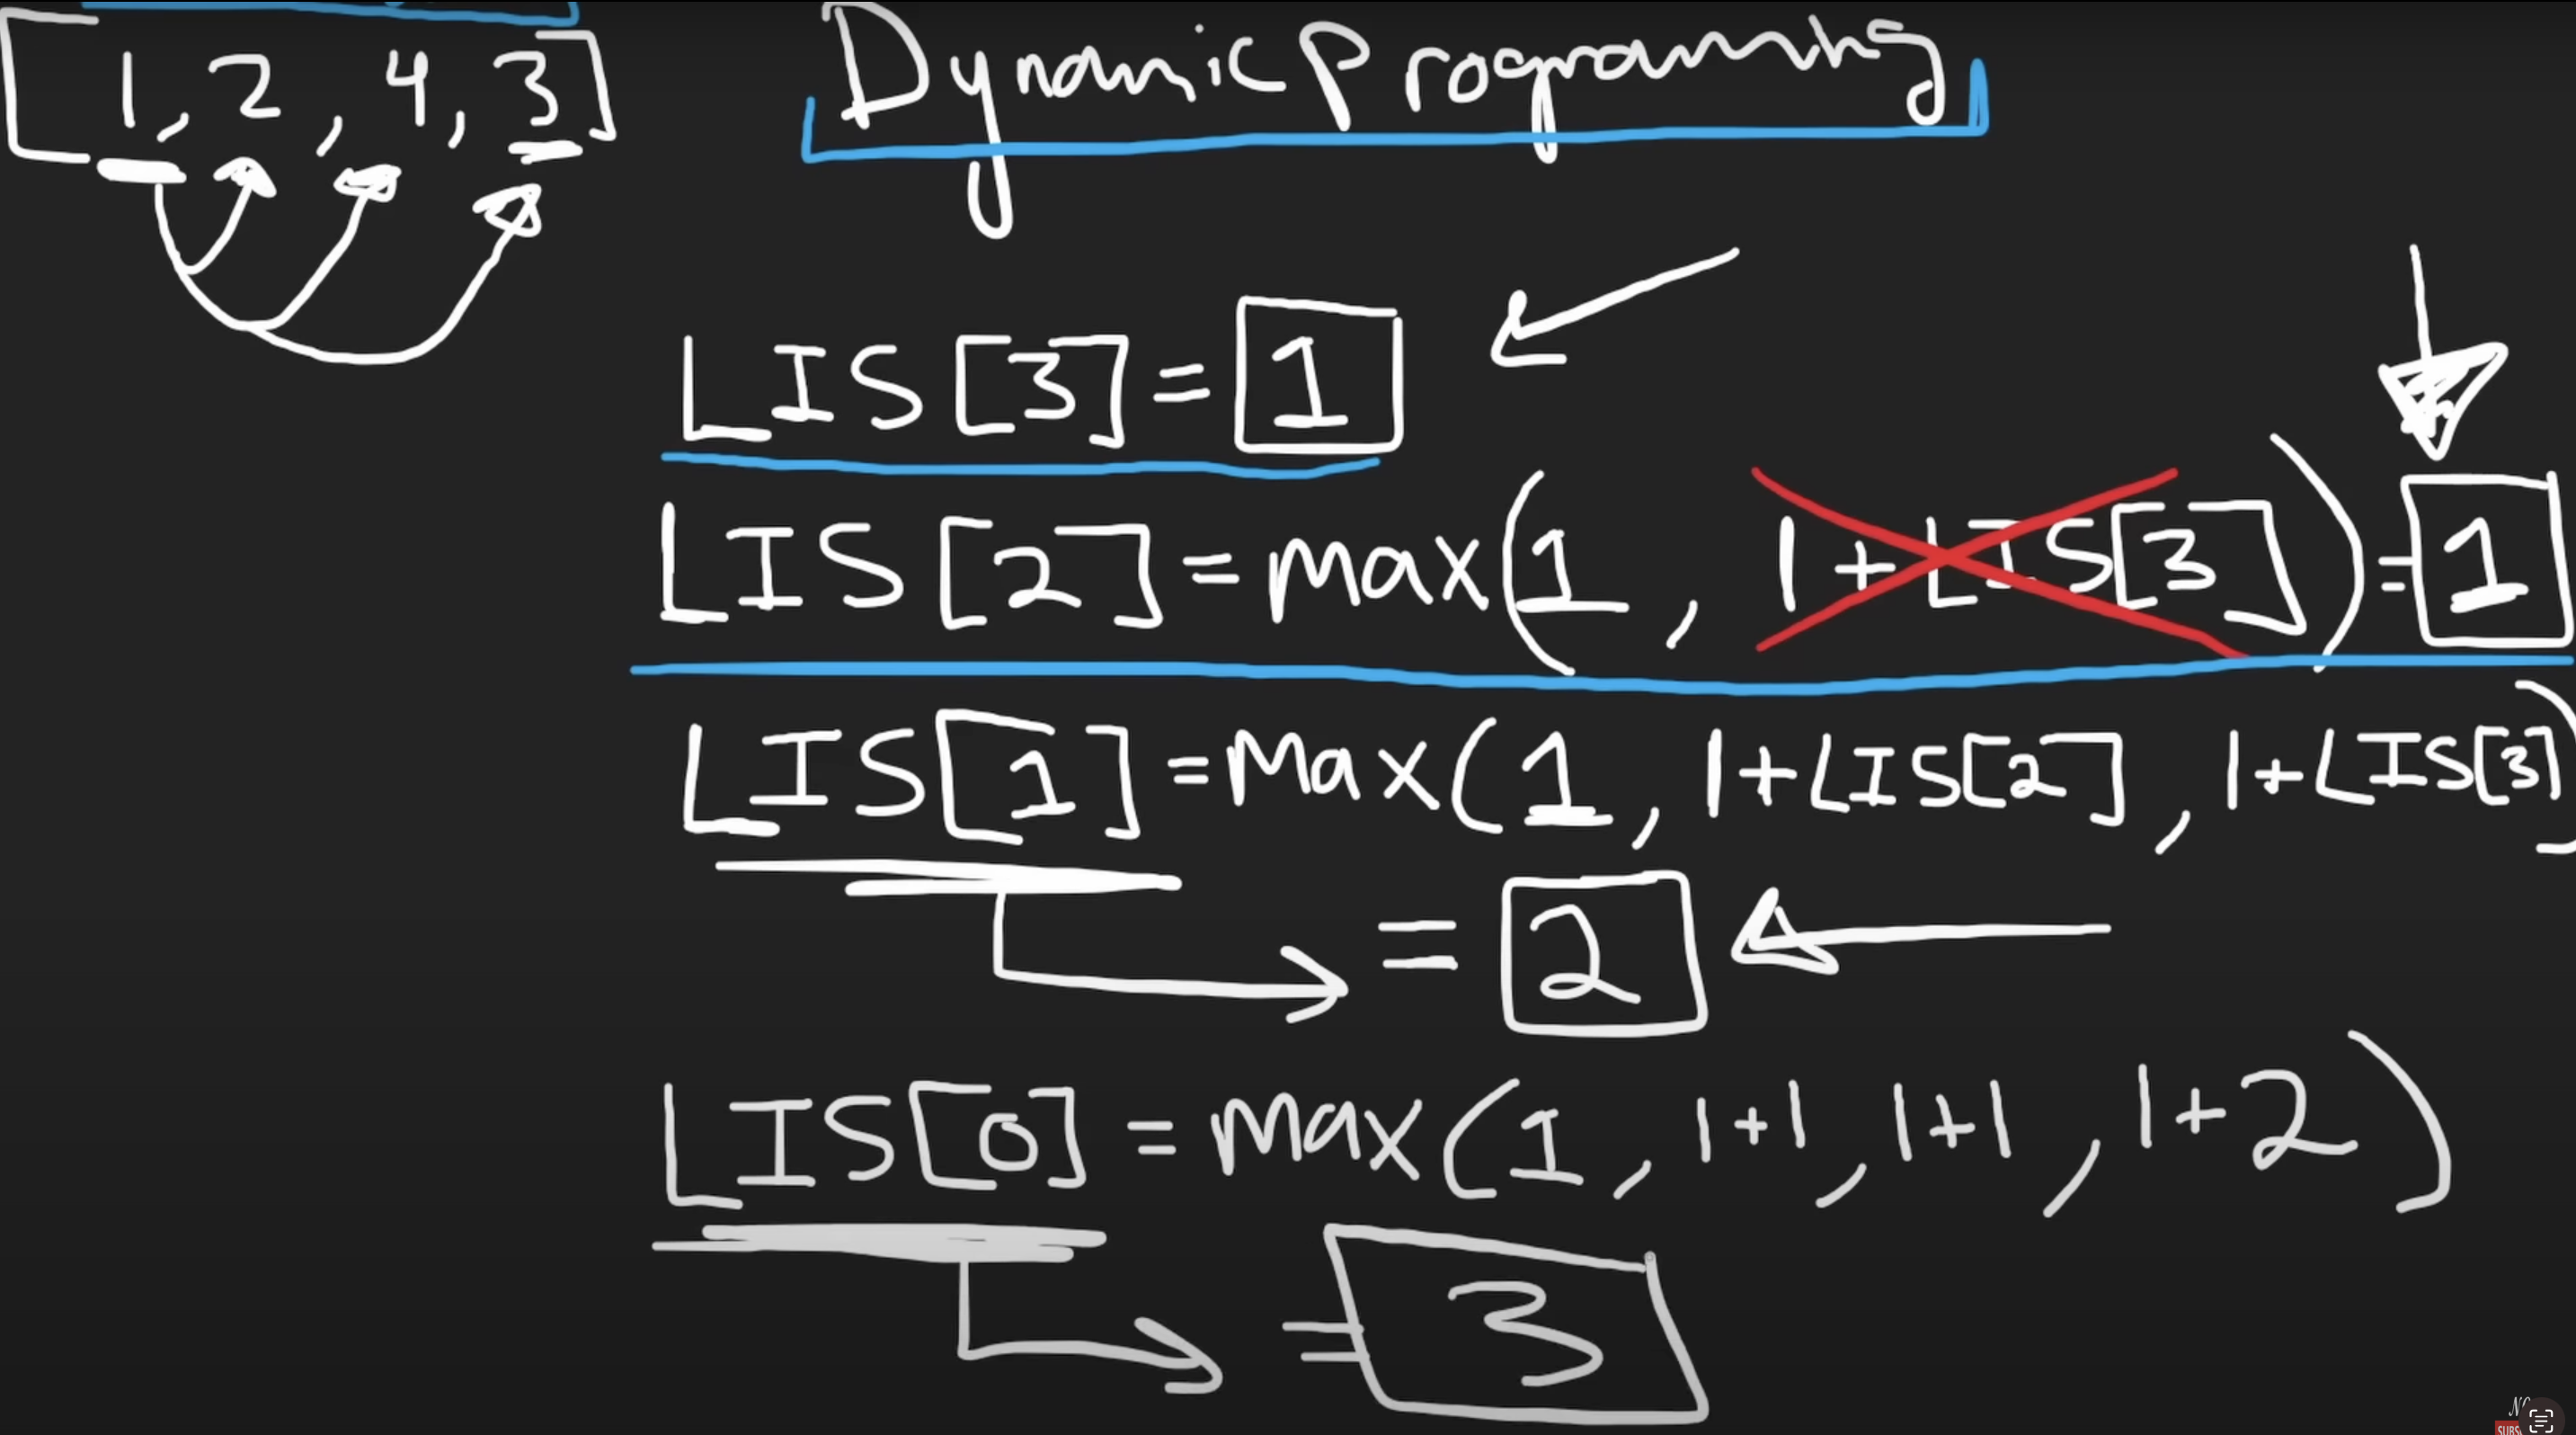 [1, 2, 4, 3]
Dynamic Programing
LIS[3] = 1
LIS[2] = max(1, 1+LIS[3]) = 1
LIS[1] = Max(1, 1+LIS[2], 1+LIS[3])
= 2
LIS[0] = max(1, 1+1, 1+1, 1+2)
= 3